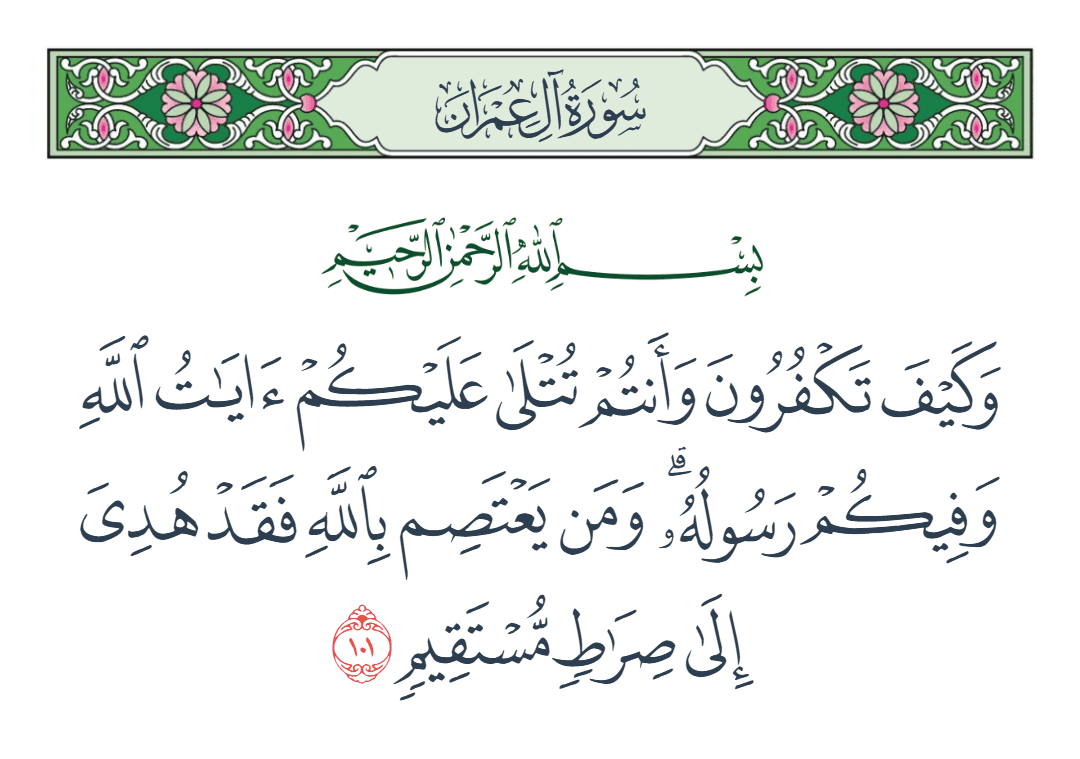 سُورَةُ آلِ عِمۡرَانَ
بِسۡمِ ٱللَّهِ ٱلرَّحۡمَٰنِ ٱلرَّحِيمِ
وَكَيۡفَ تَكۡفُرُونَ وَأَنتُمۡ تُتۡلَىٰ عَلَيۡكُمۡ ءَايَٰتُ ٱللَّهِ
وَفِيكُمۡ رَسُولُهُۥۗ وَمَن يَعۡتَصِم بِٱللَّهِ فَقَدۡ هُدِىَ
إِلَىٰ صِرَٰطٖ مُّسۡتَقِيمٖ ١٠١